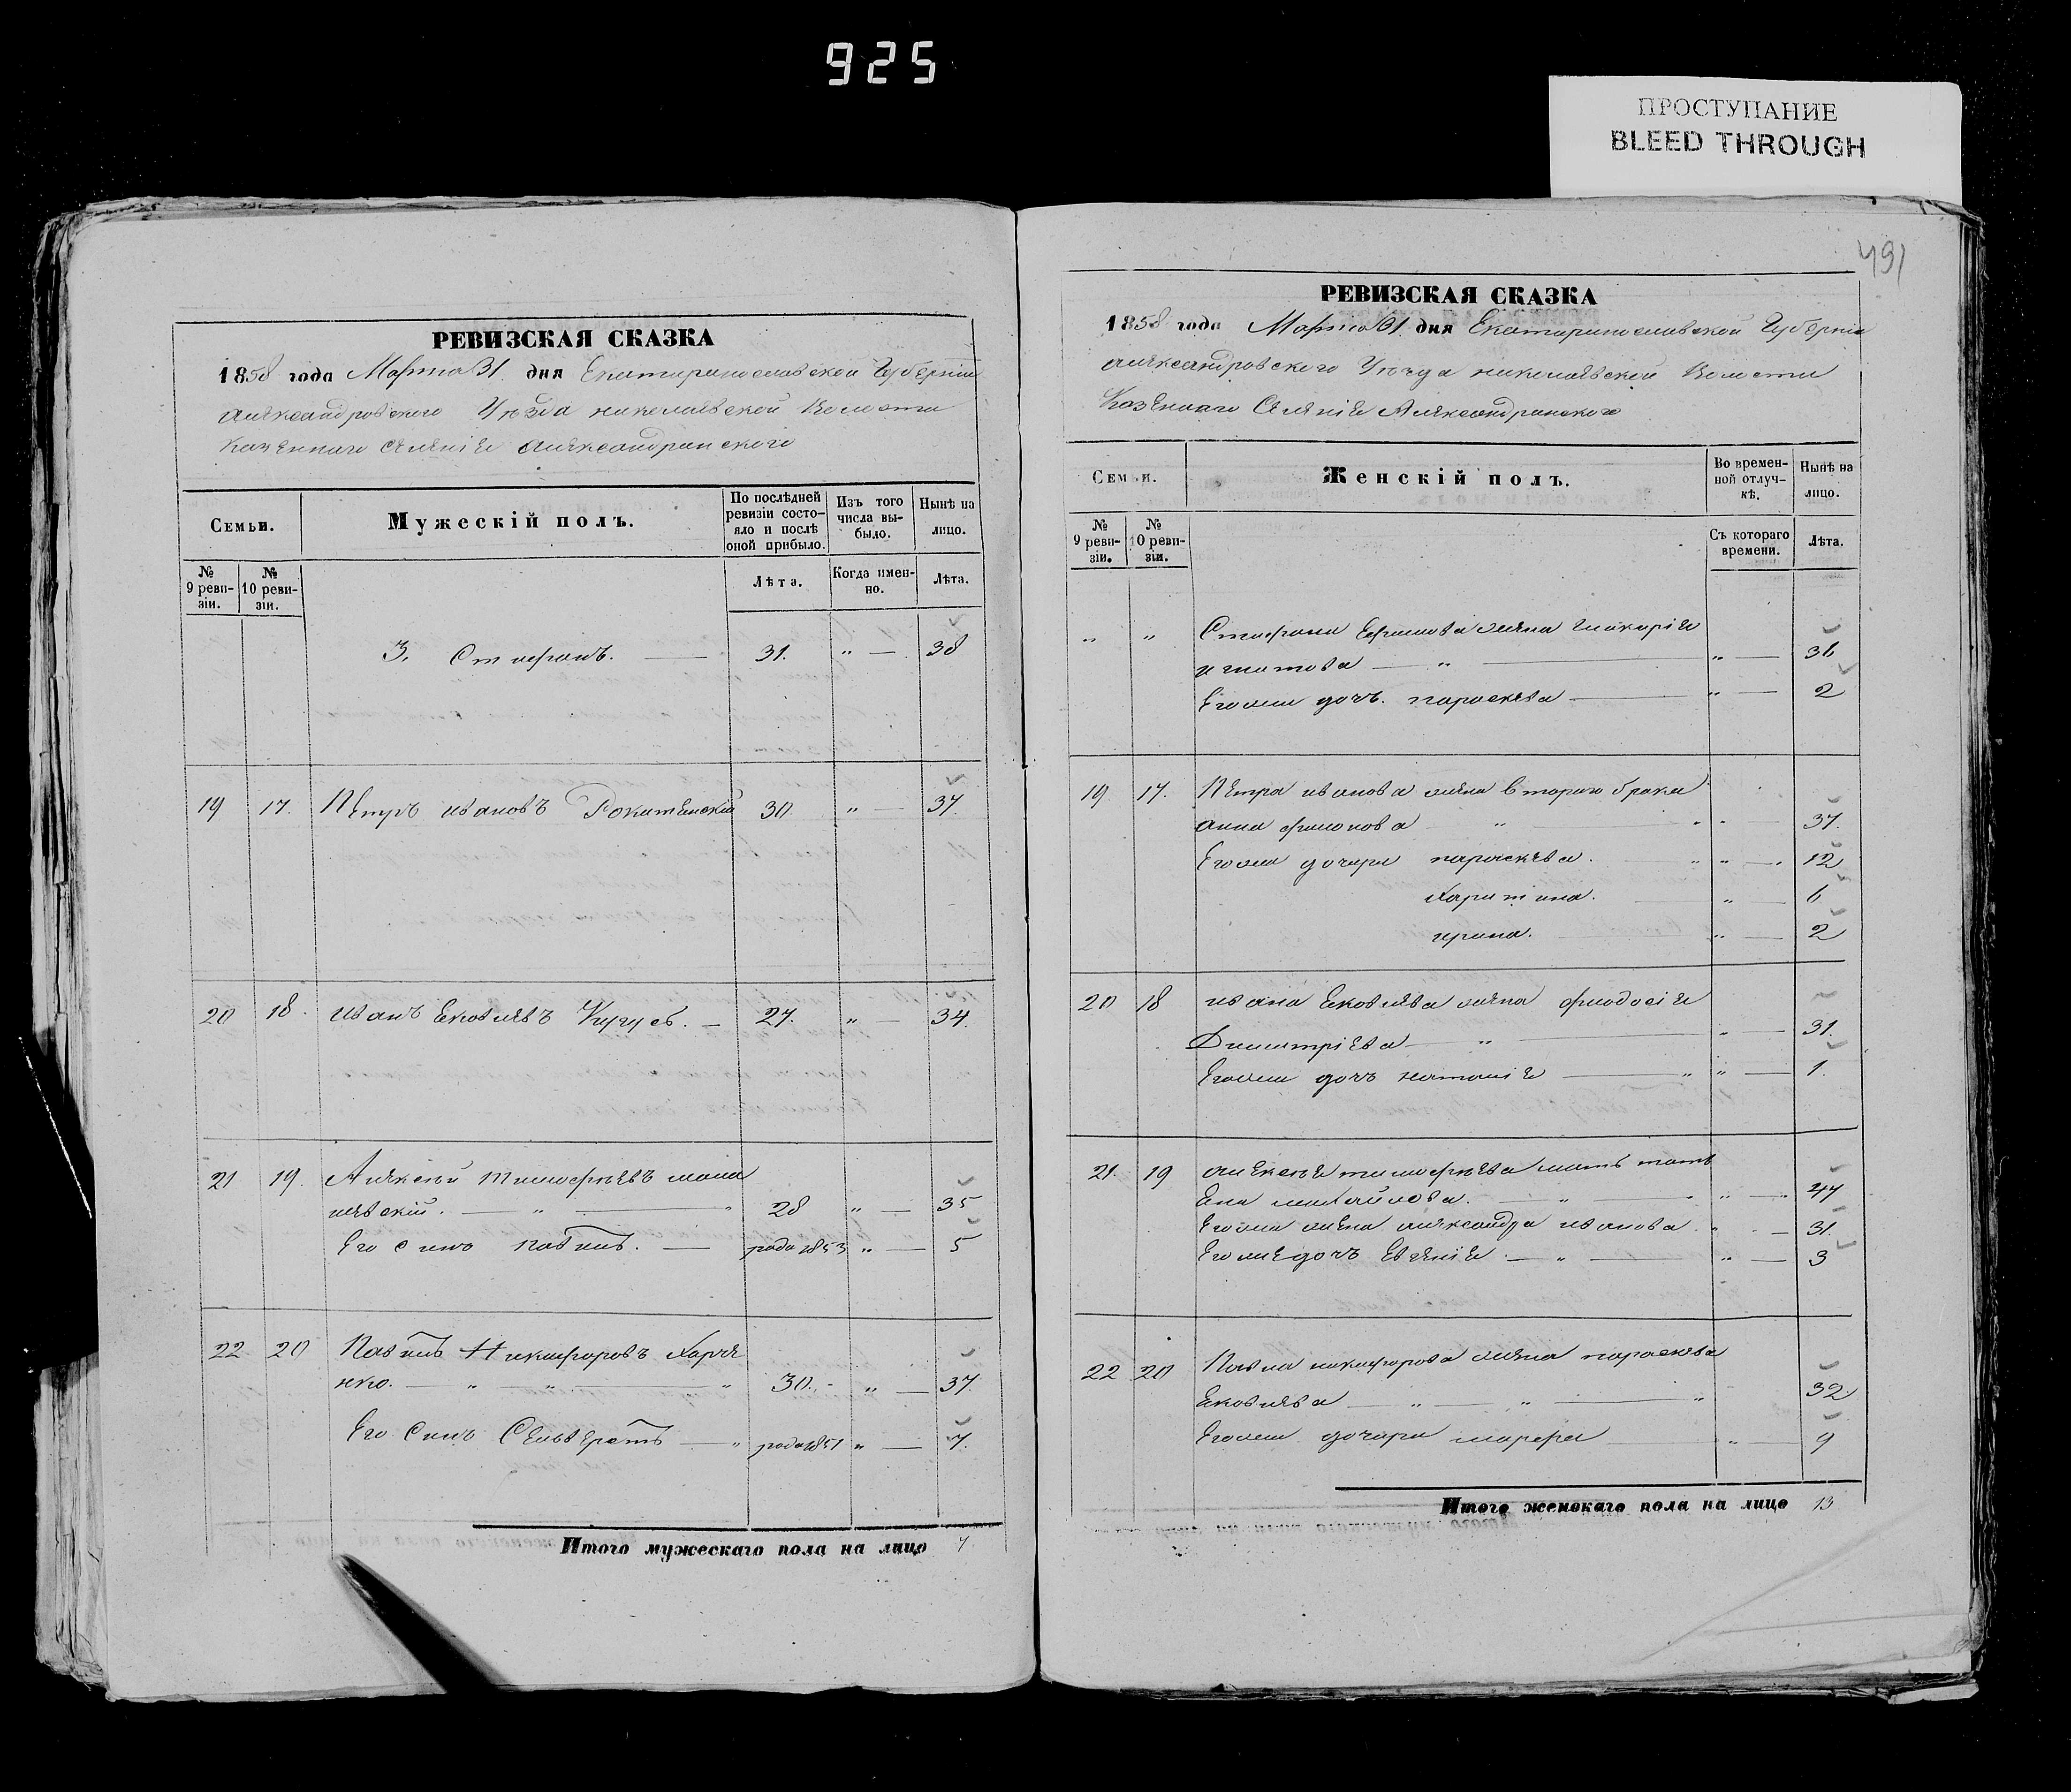 925
ПРОСТУПАНИЕ
BLEED THROUGH
РЕВИЗСКАЯ СКАЗКА
1858 года Марта 31 дня Екатеринославской Губерніи
александровского Уѣзда николаевской Волости
Казеннаго селеніе александранского
Семьи.
Мужескій полъ.
По послѣдней ревизіи состояло и послѣ оной прибыло.
Изъ того числа выбыло.
Нынѣ на лицо.
№ 9 ревизіи.
№ 10 ревизіи.
Лѣта.
Когда именно.
Лѣта.
3. Стефанъ. — 31. " — 38
19 17. Петръ ивановъ 30. " — 37.
20 18. иванъ Ековлевъ — 27. " — 34.
21 19. Алексѣй тимофѣевъ мали
невский. — " — " 28 " — 35
Его синъ Павелъ. — рода 1853 " — 5
22 20 Павелъ Никифоровъ Харче
нко. — " — " — " 30. - " — 37.
Его Синъ — " рода 1851 " — 7.
Итого мужескаго пола на лицо 7
491
РЕВИЗСКАЯ СКАЗКА
1858 года Марта 31 дня Екатеринославской Губерніи
александровского Уѣзда николаевской Волости
Казеннаго Селеніе Александранского
Семьи.
Женскій полъ.
Во временной отлучкѣ.
Нынѣ на лицо.
№ 9 ревизіи.
№ 10 ревизіи.
Съ котораго времени.
Лѣта.
" " Стефана жена
игнатова — " — " — 36
Егоже дочъ. параскева — " — 2
19 17. Петра иванова жена втораго брака
анна — " — " — 37.
Егоже дочери параскева. " — 12
Харитина. " — 6
ирина. " — 2
20 18 ивана Ековлева жена феодосіе
Димитріева — " — " — 31.
Егоже дочъ наталіе — " " — 1.
21. 19 алексѣе тимофѣева мать тать
Ена михайлова. — " — " — 47
Егоже жена александра иванова " — 31.
Егоже дочъ Евгеніе. — " — " — 3
22 20 Павла никифорова жена параскева
Ековлева — " — " — " 32
Егоже дочери марфа — " — 9
Итого женскаго пола на лицо 13